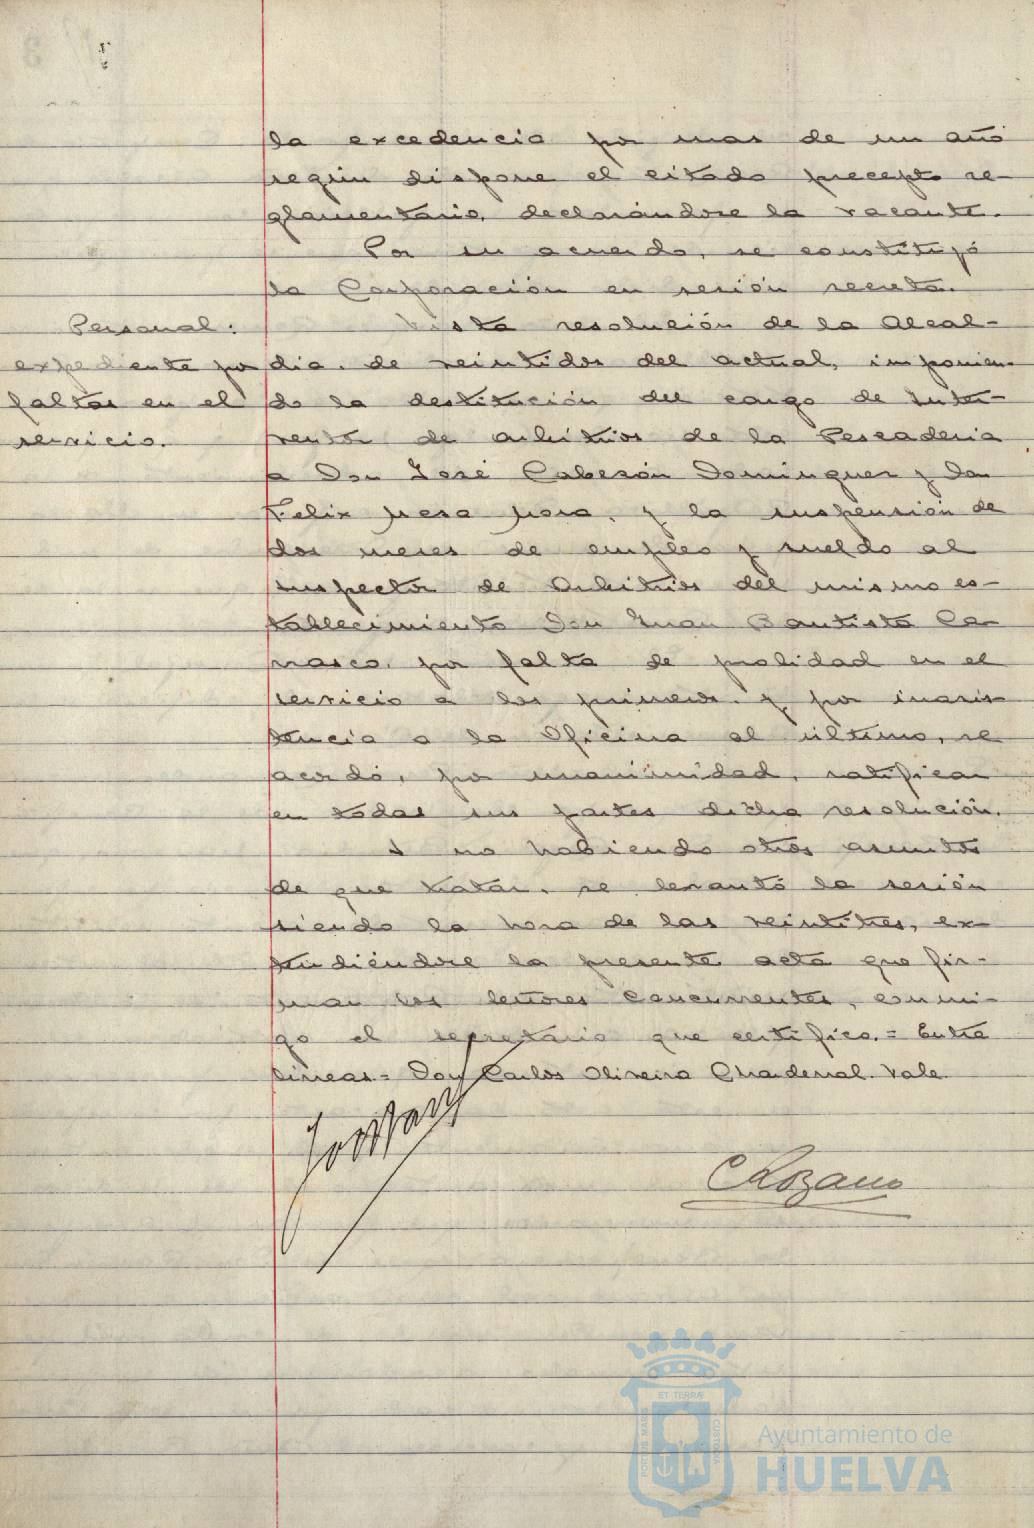 la excedencia por mas de un año
según dispone el citado precepto re-
glamentario, declarándose la vacante.
Por su acuerdo, se constituyó
la Corporación en sesión secreta.
Personal:
expediente por
faltas en el
servicio.
Vista resolución de la Alcal-
dia, de veintidos del actual, imponien-
do la destitución del cargo de Inter-
ventor de arbitrios de la Pescaderia
a Don José Cabezón Dominguez y Don
Felix y la suspensión de
dos meses de empleo y sueldo al
Inspector de Arbitrios del mismo es-
tablecimiento Don Juan Bautista Ca-
rrasco, por falta de probidad en el
servicio a los primeros, y por inasis-
tencia a la Oficina al último, se
acordó, por unanimidad, ratificar
en todas sus partes dicha resolución.
Y no habiendo otros asuntos
de que tratar, se levantó la sesión
siendo la hora de las veintitres, ex-
tendiéndose la presente acta que fir-
man los señores concurrentes, conmi-
go el secretario que certifico.= Entre
lineas= Don Carlos Oliveira Chardenal. Vale
CLozano
ET TERRÆ
PORTUS MARIS
CUSTODIA
Ayuntamiento de
HUELVA